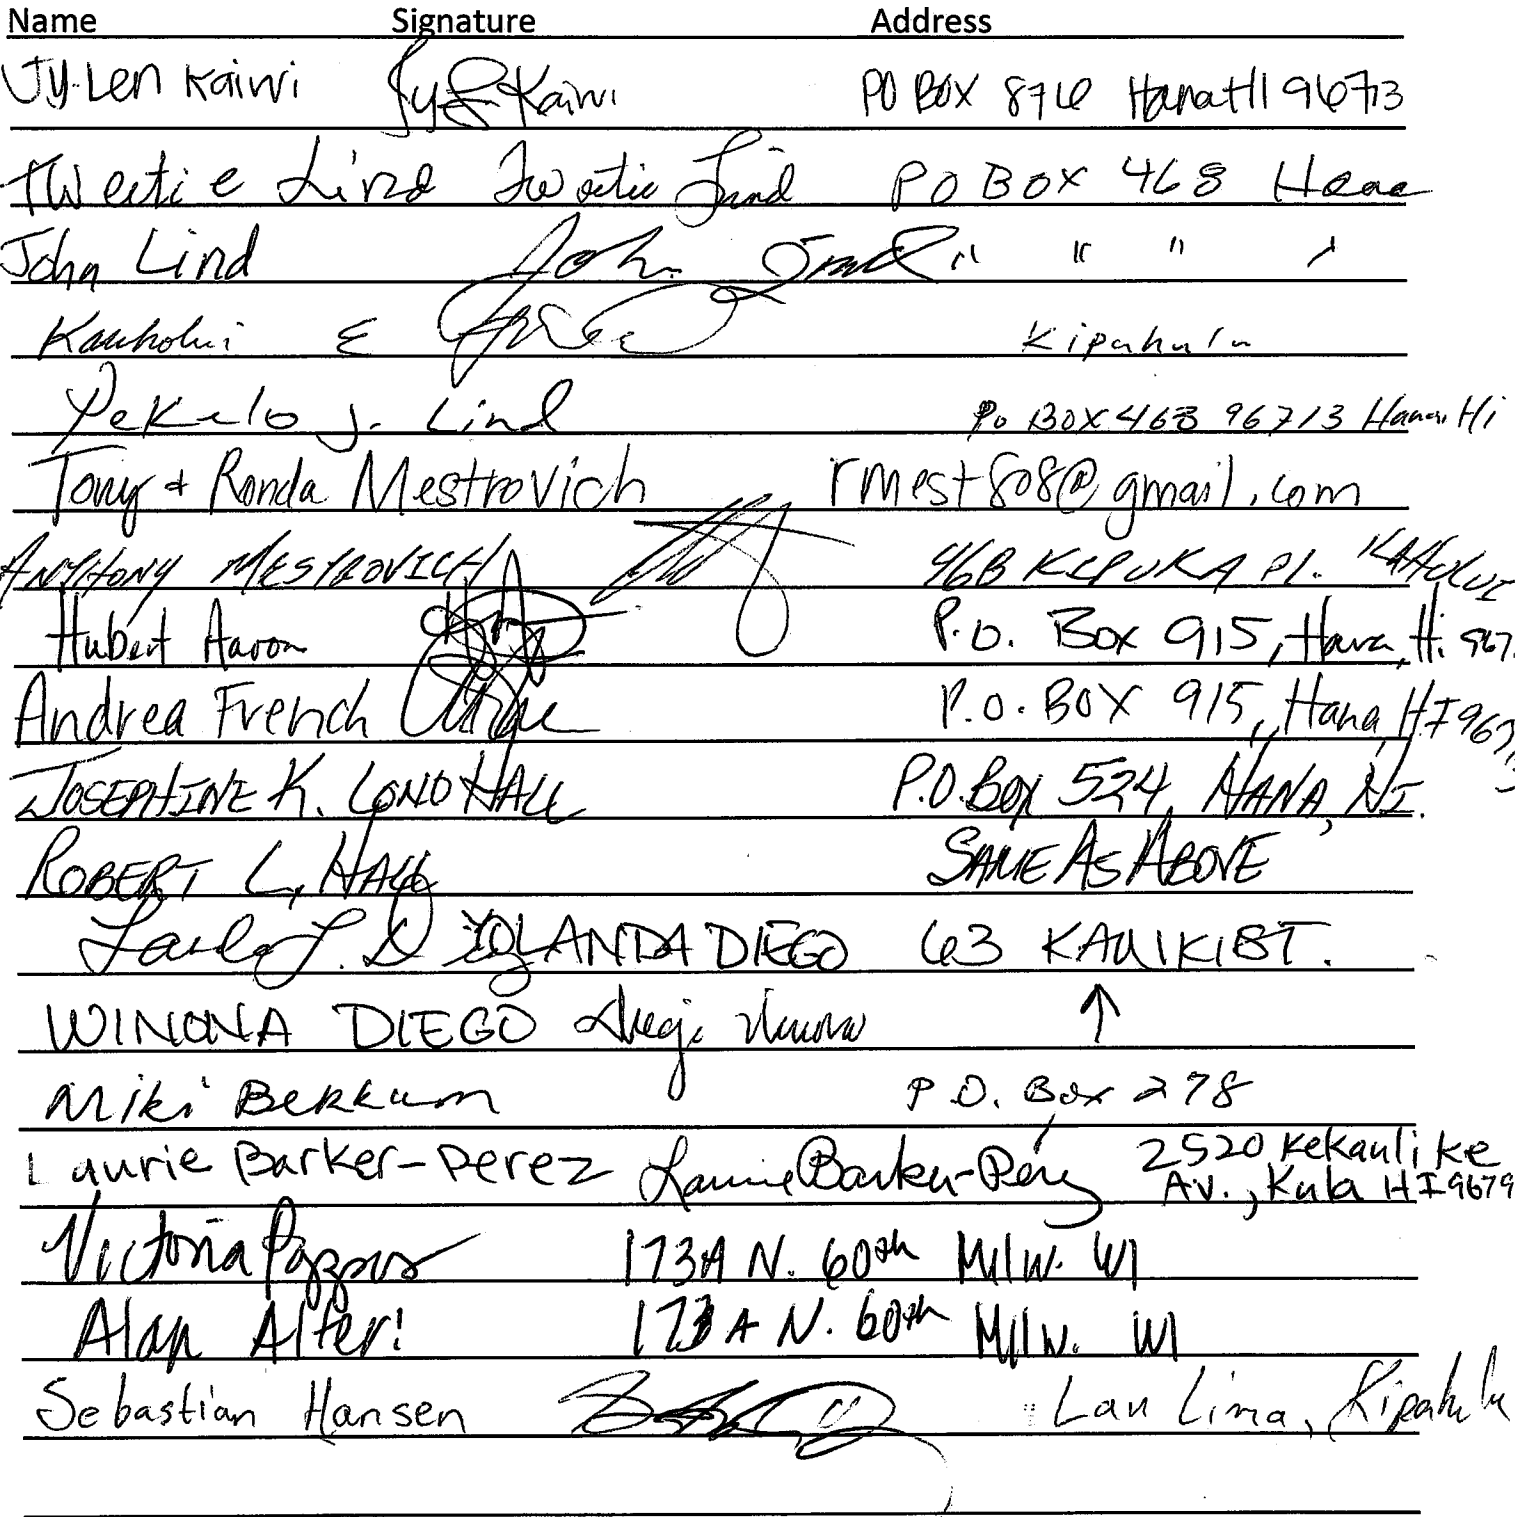 Name Signature Address
Jy-Len Kaiwi Jy-L Kaiwi PO BOX 876 Hana HI 96713
Tweetie Lind Tweetie Lind PO BOX 468 Hana
John Lind John Lind " " " "
Kauholui E Kipahulu
Pekelo J. Lind Po BOX 468 96713 Hana Hi
Tony + Ronda Mestrovich rmest808@gmail.com
ANTHONY MESTROVICH 46B KIPUKA Pl. KAHULUI
Hubert Aaron P.O. Box 915, Hana, Hi. 967
Andrea French P.O. BOX 915, Hana, HI 96713
JOSEPHINE K. LONO HALL P.O. BOX 524, HANA, HI.
ROBERT L. HALL SAME AS ABOVE
YOLANDA DIEGO 63 KAUIKI ST.
WINONA DIEGO Diego Winona ↑
Miki Bekkum P.O. Box 278
Laurie Barker-Perez Laurie Barker-Pérez 2520 Kekaulike
Av., Kula HI 9679
Victoria 173A N. 60th Milw. WI
Alan Alter! 173A N. 60th Milw. WI
Sebastian Hansen Lau Lima, Kipahulu